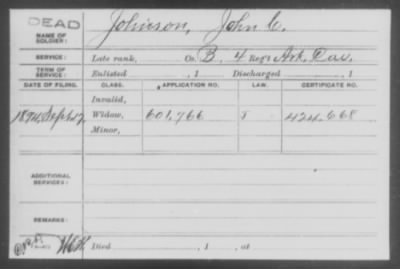 DEAD
NAME OF SOLDIER: Johnson, John C.
SERVICE: Late rank, Co. B, 4 Reg't Ark. Cav.
TERM OF SERVICE: Enlisted , 1 Discharged , 1
DATE OF FILING. CLASS. APPLICATION NO. LAW. CERTIFICATE NO.
Invalid,
1894, Sept 17, Widow, 601,766 424,668
Minor,
ADDITIONAL SERVICES:
REMARKS:
Died , 1 , at